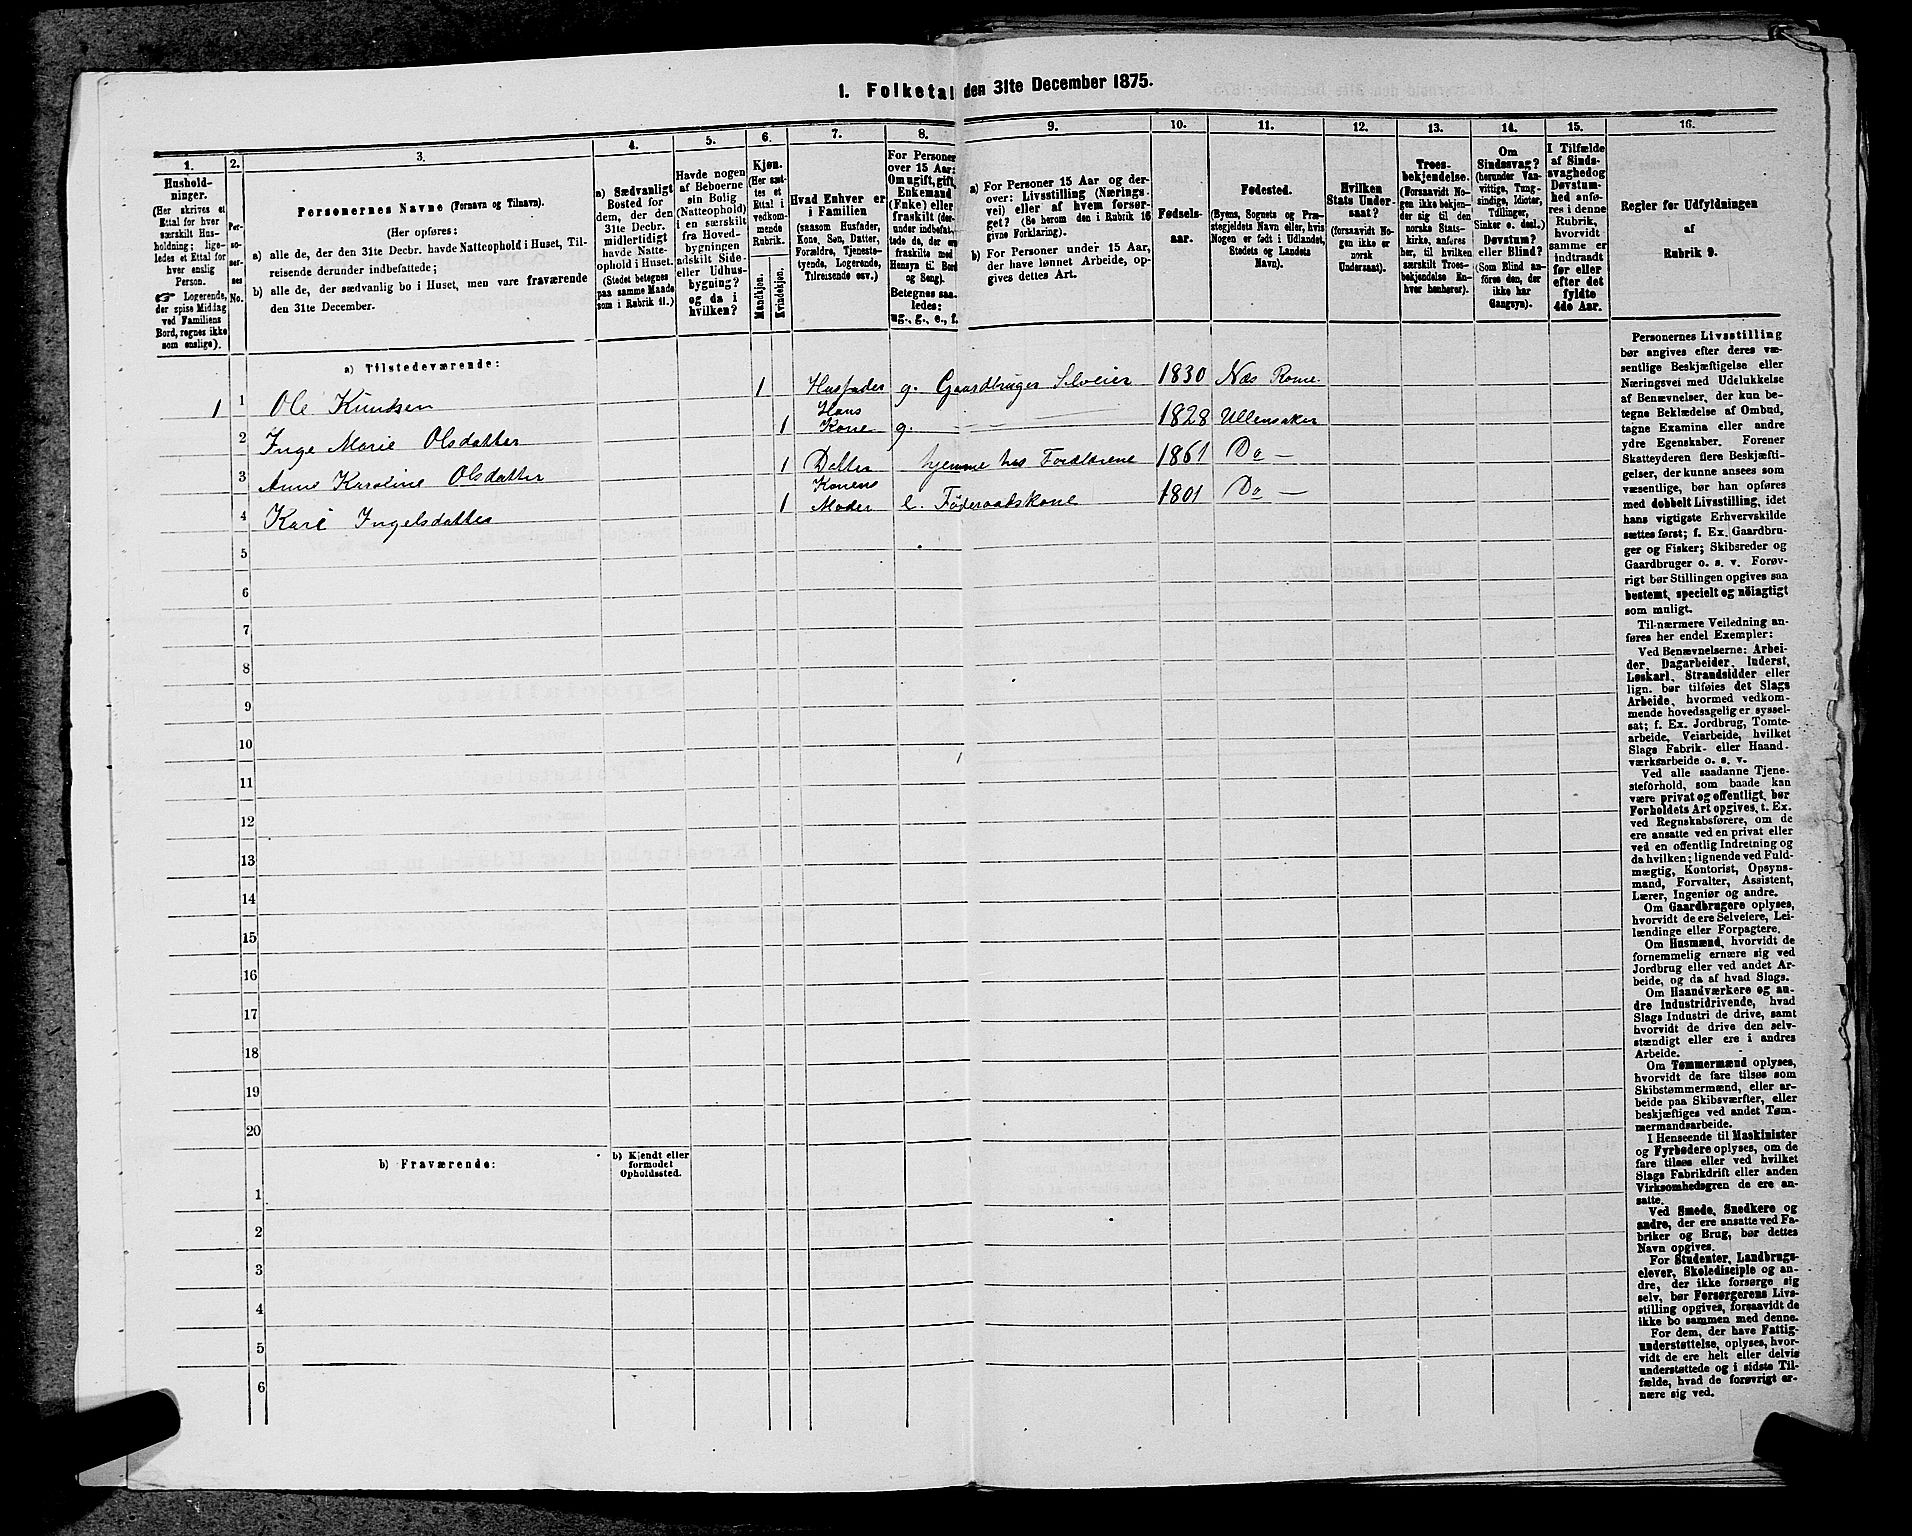 1. Folketal den 31te December 1875.
1.
Husholdninger.
(Her skrives et
Ettal for hver
særskilt Husholdning; ligeledes
et Ettal for
hver enslig
Person.
☛ Logerende,
der spise Middag
ved Familiens
Bord, regnes ikke
som enslige).
2.
Personernes
No.
3.
Personernes Navne (Fornavn og Tilnavn).
(Her opføres:
a) alle de, der den 31te Decbr. havde Natteophold i Huset, Tilreisende derunder indbefattede;
b) alle de, der sædvanlig bo i Huset, men vare fraværende
den 31te December.
4.
a) Sædvanligt
Bosted for
dem, der den
31te Decbr.
midlertidigt
havde Natteophold i Huset.
(Stedet betegnes
paa samme Maade
som i Rubrik 11.)
5.
Havde nogen
af Beboerne
sin Bolig
(Natteophold)
i en særskilt
fra Hovedbygningen
adskilt Side-
eller Udhusbygning?
og da i
hvilken?
6.
Kjøn.
(Her sættes et
Ettal i
vedkommende
Rubrik.
Mandkjøn.
Kvindekjøn.
7.
Hvad Enhver er
i Familien
(saasom Husfader,
Kone, Søn, Datter,
Forældre, Tjenestetyende, Logerende,
Tilreisende osv.)
8.
For Personer
over 15 Aar:
Om ugift, gift,
Enkemand
(Enke) eller
fraskilt (derunder indbefattede de, der ere
fraskilte med
Hensyn til Bord
og Seng).
Betegnes saaledes:
ug., g., e., f.
9.
a) For Personer 15 Aar og derover: Livsstilling (Næringsvei) eller af hvem forsørget? (Se herom den i Rubrik 16
givne Forklaring).
b) For Personer under 15 Aar,
der have lønnet Arbeide, opgives dettes Art.
10.
Fødselsaar.
11.
Fødested.
(Byens, Sognets og Præstegjeldets Navn eller, hvis
Nogen er født i Udlandet,
Stedets og Landets
Navn).
12.
Hvilken
Stats Undersaat?
(forsaavidt Nogen ikke er
norsk
Undersaat).
13.
Troesbekjendelse.
(Forsaavidt Nogen ikke bekjender sig til den
norske Statskirke, anføres
her, til hvilken
særskilt Troesbekjendelse Enhver henhører).
14.
Om
Sindssvag?
(herunder Vanvittige, Tungsindige, Idioter,
Tullinger,
Sinker o. desl.)
Døvstum?
eller Blind?
(Som Blind anføres den, der
ikke har
Gangsyn).
15.
I Tilfælde
af Sindssvaghed og
Døvstumhed anføres i denne
Rubrik,
hvorvidt
samme er
indtraadt
før eller
efter det
fyldte
4de Aar.
16.
Regler for Udfyldningen
af
Rubrik 9.
a) Tilstedeværende:
1 1 Ole Knudsen 1 Husfader g. Gaardbruger Selveier 1830 Næs Rome.
2 Inge Marie Olsdatter 1 Hans Kone g. — 1828 Ullensaker
3 Anne Karoline Olsdatter 1 Datter hjemme hos Forældrene 1861 Do —
4 Kari Ingelsdatter 1 Konens Moder e. Føderaadskone 1801 Do —
5
6
7
8
9
10
11
12
13
14
15
16
17
18
19
20
b) Fraværende:
b) Kjendt eller
formodet
Opholdssted.
1
2
3
4
5
6
Personernes Livsstilling
bør angives efter deres væsentlige Beskjæftigelse eller
Næringsvei med Udelukkelse
af Benævnelser, der kun betegne Beklædelse af Ombud,
tagne Examina eller andre
ydre Egenskaber. Forener
Skatteyderen flere Beskjæftigelser, der kunne ansees som
væsentlige, bør han opføres
med dobbelt Livsstilling, idet
hans vigtigste Erhvervskilde
sættes først; f. Ex. Gaardbruger og Fisker; Skibsreder og
Gaardbruger o. s. v. Forøvrigt bør Stillingen opgives saa
bestemt, specielt og nøiagtigt
som muligt.
Til nærmere Veiledning anføres her endel Exempler:
Ved Benævnelserne: Arbeider, Dagarbeider, Inderst,
Løskarl, Strandsidder eller
lign. bør tilføies det Slags
Arbeide, hvormed vedkommende hovedsagelig er sysselsat; f. Ex. Jordbrug, Tomtearbeide, Veiarbeide, hvilket
Slags Fabrik- eller Haandværksarbeide o. s. v.
Ved alle saadanne Tjenesteforhold, som baade kan
være privat og offentligt, bør
Forholdets Art opgives, t. Ex.
ved Regnskabsførere, om de
ere ansatte ved en privat eller
ved en offentlig Indretning og
da hvilken; lignende ved Fuldmægtig, Kontorist, Opsynsmand, Forvalter, Assistent,
Lærer, Ingeniør og andre.
Om Gaardbrugere oplyses,
hvorvidt de ere Selveiere, Leilændinge eller Forpagtere.
Om Husmænd, hvorvidt de
fornemmelig ernære sig ved
Jordbrug eller ved andet Arbeide, og da af hvad Slags.
Om Haandværkere og andre Industridrivende, hvad
Slags Industri de drive, samt
hvorvidt de drive den selvstændigt eller ere i andres
Arbeide.
Om Tømmermænd oplyses,
hvorvidt de fare tilsøs som
Skibstømmermænd, eller arbeide paa Skibsværfter, eller
beskjæftiges ved andet Tømmermandsarbeide.
I Henseende til Maskinister
og Fyrbødere oplyses, om de
fare tilsøs eller ved hvilket
Slags Fabrikdrift eller anden
Virksomhedsgren de ere ansatte.
Ved Smede, Snedkere og
andre, der ere ansatte ved Fabriker og Brug, bør dettes
Navn opgives.
For Studenter, Landbrugselever, Skoledisciple og andre, der ikke forsørge sig
selv, bør Forsørgerens Livsstilling opgives, forsaavidt de
ikke bo sammen med denne.
For dem, der have Fattigunderstøttelse, oplyses, hvorvidt de ere helt eller delvis
understøttede og i sidste Tilfælde, hvad de forøvrigt ernære sig ved.